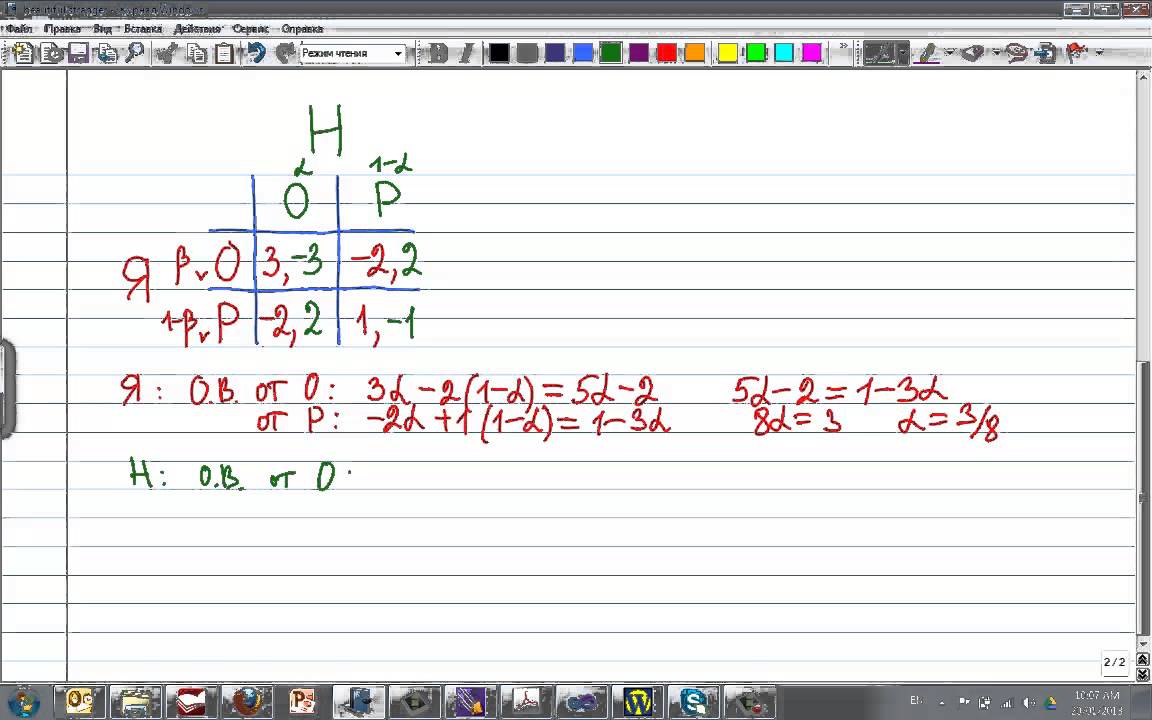 Файл Правка Вид Вставка Действия Сервис Справка
Режим чтения
Н
α 1-α
О Р
Я β, О 3,-3 -2,2
1-β, Р -2,2 1,-1
Я: О.В. от О: 3α-2(1-α)=5α-2 5α-2=1-3α
от Р: -2α+1(1-α)=1-3α 8α=3 α=3/8
Н: О.В. от О
2/2
EN 10:07 AM